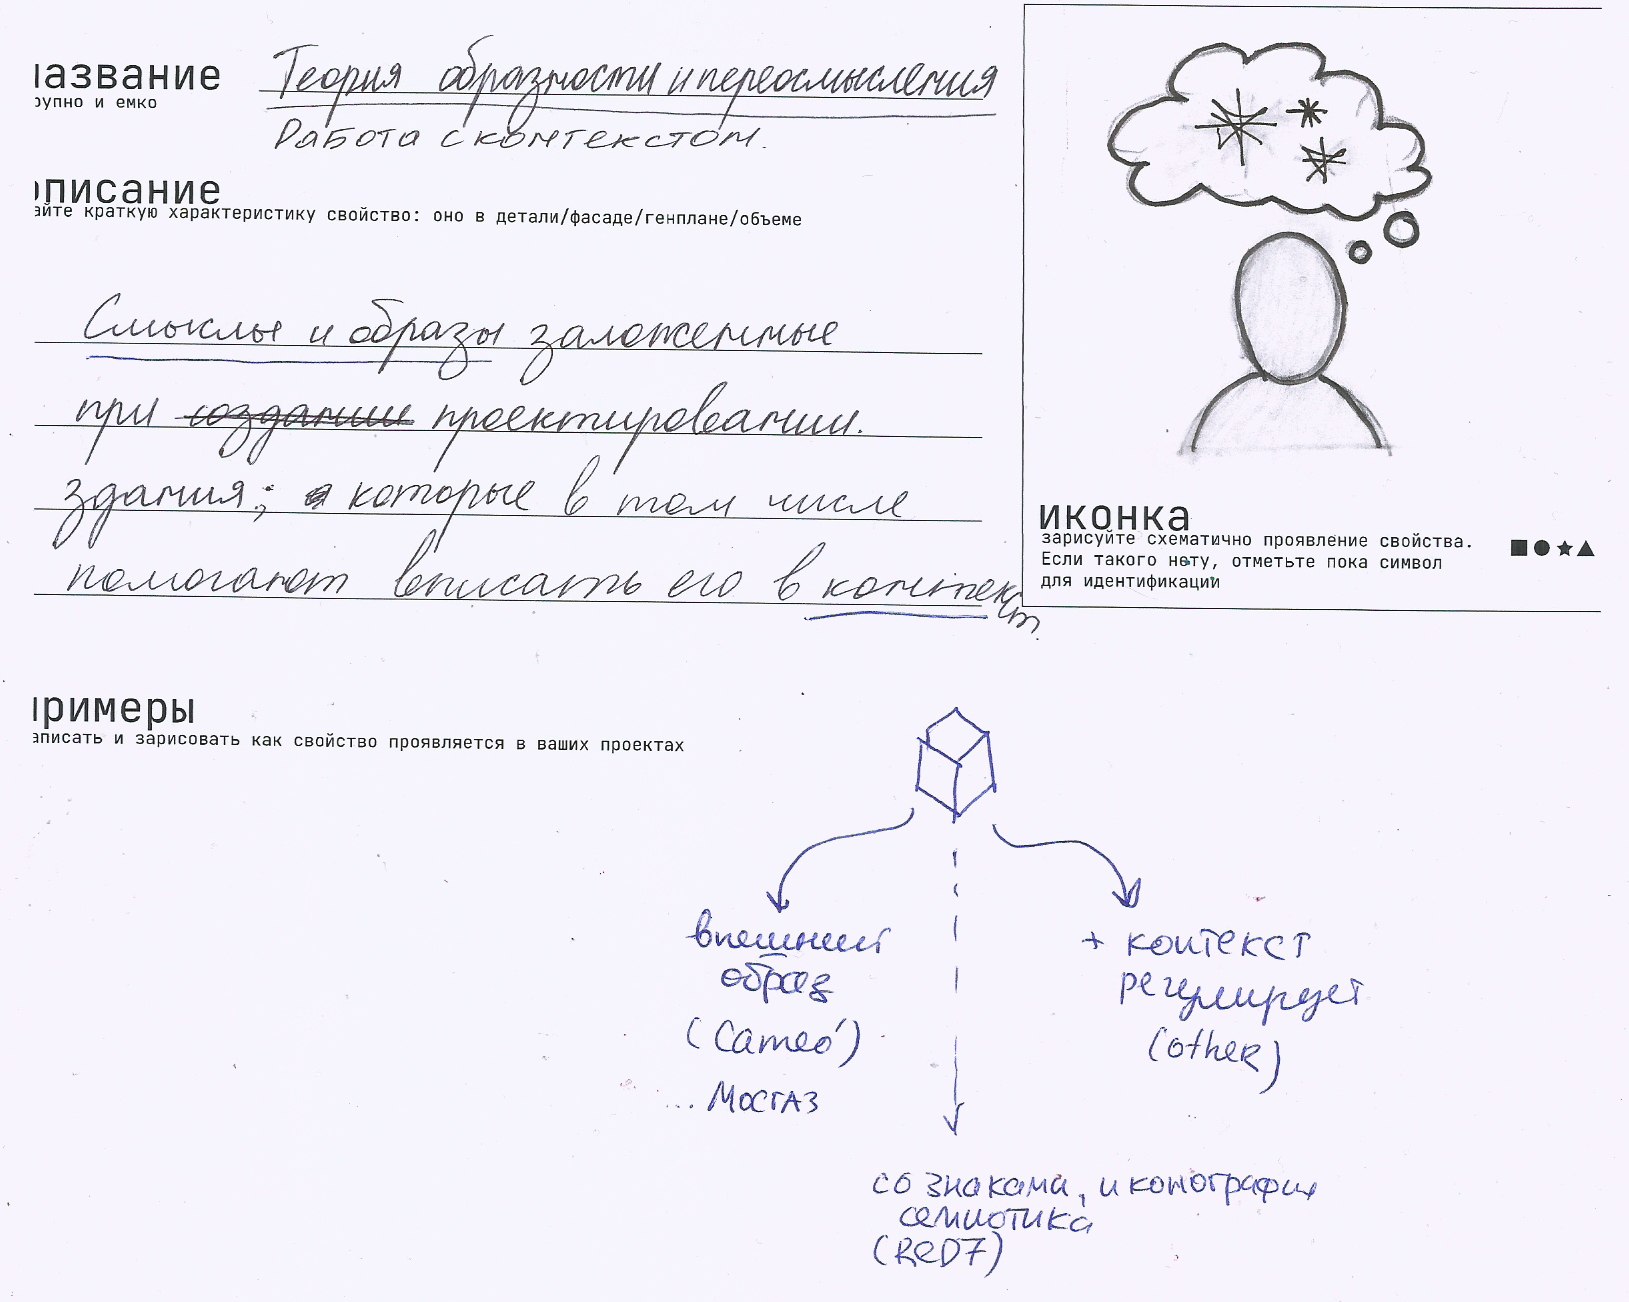 азвание
рупно и емко
Теория образности и переосмысления
Работа с контекстом.
описание
айте краткую характеристику свойство: оно в детали/фасаде/генплане/объеме
Смыслы и образы заложенные
при создании проектировании.
здания; которые в том числе
помогают вписать его в контекст.
иконка
зарисуйте схематично проявление свойства.
Если такого нету, отметьте пока символ
для идентификации
примеры
аписать и зарисовать как свойство проявляется в ваших проектах
внешний
образ
(Cameo')
... Мосгаз
+ контекст
регулирует
(other)
со знаками, иконография
семиотика
(RED7)